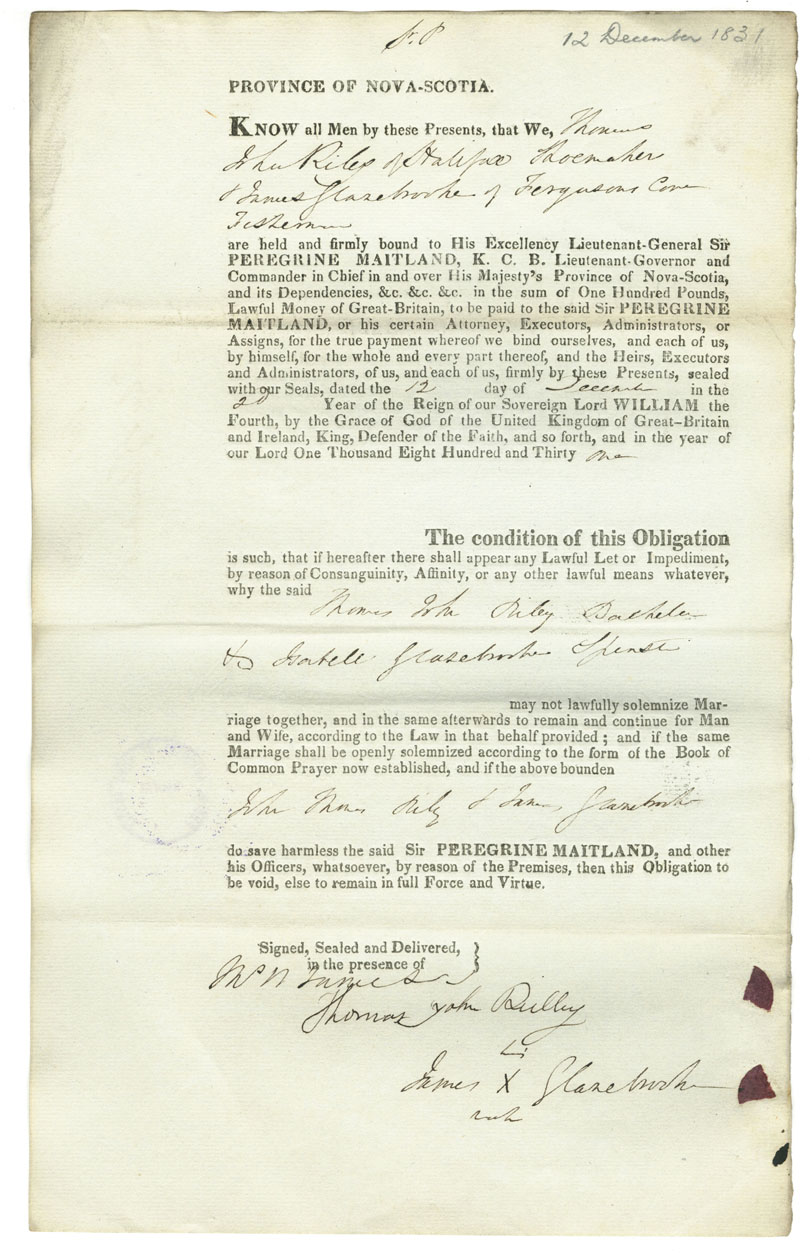 12 December 1831
PROVINCE OF NOVA-SCOTIA.
KNOW all Men by these Presents, that We, Thomas
John Riley of Halifax Shoemaker
& James Glazebrooke of Fergusons Cove
Fisherman
are held and firmly bound to His Excellency Lieutenant-General Sir
PEREGRINE MAITLAND, K. C. B. Lieutenant-Governor and
Commander in Chief in and over His Majesty's Province of Nova-Scotia,
and its Dependencies, &c. &c. &c. in the sum of One Hundred Pounds,
Lawful Money of Great-Britain, to be paid to the said Sir PEREGRINE
MAITLAND, or his certain Attorney, Executors, Administrators, or
Assigns, for the true payment whereof we bind ourselves, and each of us,
by himself, for the whole and every part thereof, and the Heirs, Executors
and Administrators, of us, and each of us, firmly by these Presents, sealed
with our Seals, dated the 12 day of December in the
2d Year of the Reign of our Sovereign Lord WILLIAM the
Fourth, by the Grace of God of the United Kingdom of Great-Britain
and Ireland, King, Defender of the Faith, and so forth, and in the year of
our Lord One Thousand Eight Hundred and Thirty one
The condition of this Obligation
is such, that if hereafter there shall appear any Lawful Let or Impediment,
by reason of Consanguinity, Affinity, or any other lawful means whatever,
why the said
Thomas John Riley Bachelor
& Isabell Glazebrooke Spinster
may not lawfully solemnize Mar-
riage together, and in the same afterwards to remain and continue for Man
and Wife, according to the Law in that behalf provided ; and if the same
Marriage shall be openly solemnized according to the form of the Book of
Common Prayer now established, and if the above bounden
John Thomas Riley & James Glazebrooke
do save harmless the said Sir PEREGRINE MAITLAND, and other
his Officers, whatsoever, by reason of the Premises, then this Obligation to
be void, else to remain in full Force and Virtue.
Signed, Sealed and Delivered,
in the presence of
James
Thomas John Rilley
his
James X Glazebrooke
mark